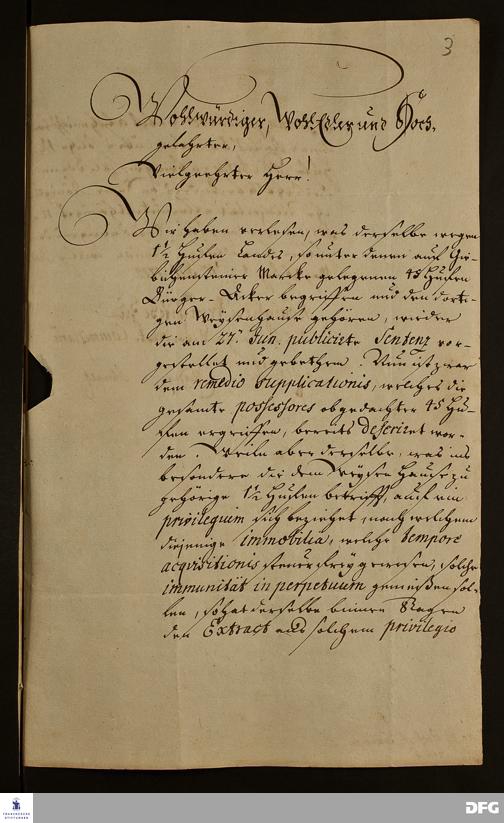 3
Wohlwürdiger, WohlEdler und Hoch-
gelahrter,
Vielgeehrter Herr!
Wir haben verlesen, was derselbe wegen
1½ Hufen Landes, so unter denen auf Gie-
bichensteiner Marcke gelegenen 45 Hufen
Bürger-Äcker begriffen und den dorti-
gen Waysenhause gehören, wieder
die am 27. Jun. publicirte Sentenz vor-
gestellet und gebethen. Nun ist zwar
dem remedio supplicationis, welches die
gesamte possessores obgedachter 45 Hu-
fen ergriffen, bereits deferiret wor-
den. Weiln aber derselbe, was ins
besondere die dem Waysen Hause zu
gehörige 1½ Hufen betrifft, auf ein
privilegium sich beziehet, nach welchem
diejenige immobilia, welche tempore
acquisitionis steuer frey gewesen, solche
immunität in perpetuum geniessen sol-
len, so hat derselbe binnen Tagen
den Extract aus solchem privilegio
FRANCKESCHE
STIFTUNGEN
DFG